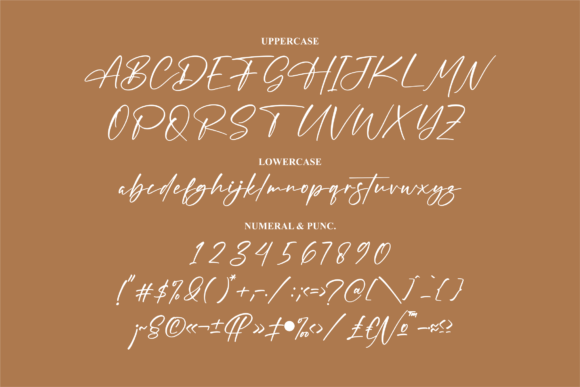 UPPERCASE
ABCDEFGHIJKLMN
OPQRSTUVWXYZ
LOWERCASE
abcdefghijklmnopqrstuvwxyz
NUMERAL & PUNC.
1234567890
!"#$%&()*+,-./:;<=>?@[\]^_`{}
¡~§©«¬±¶»‡•‰‹›/₤£€№™—≈